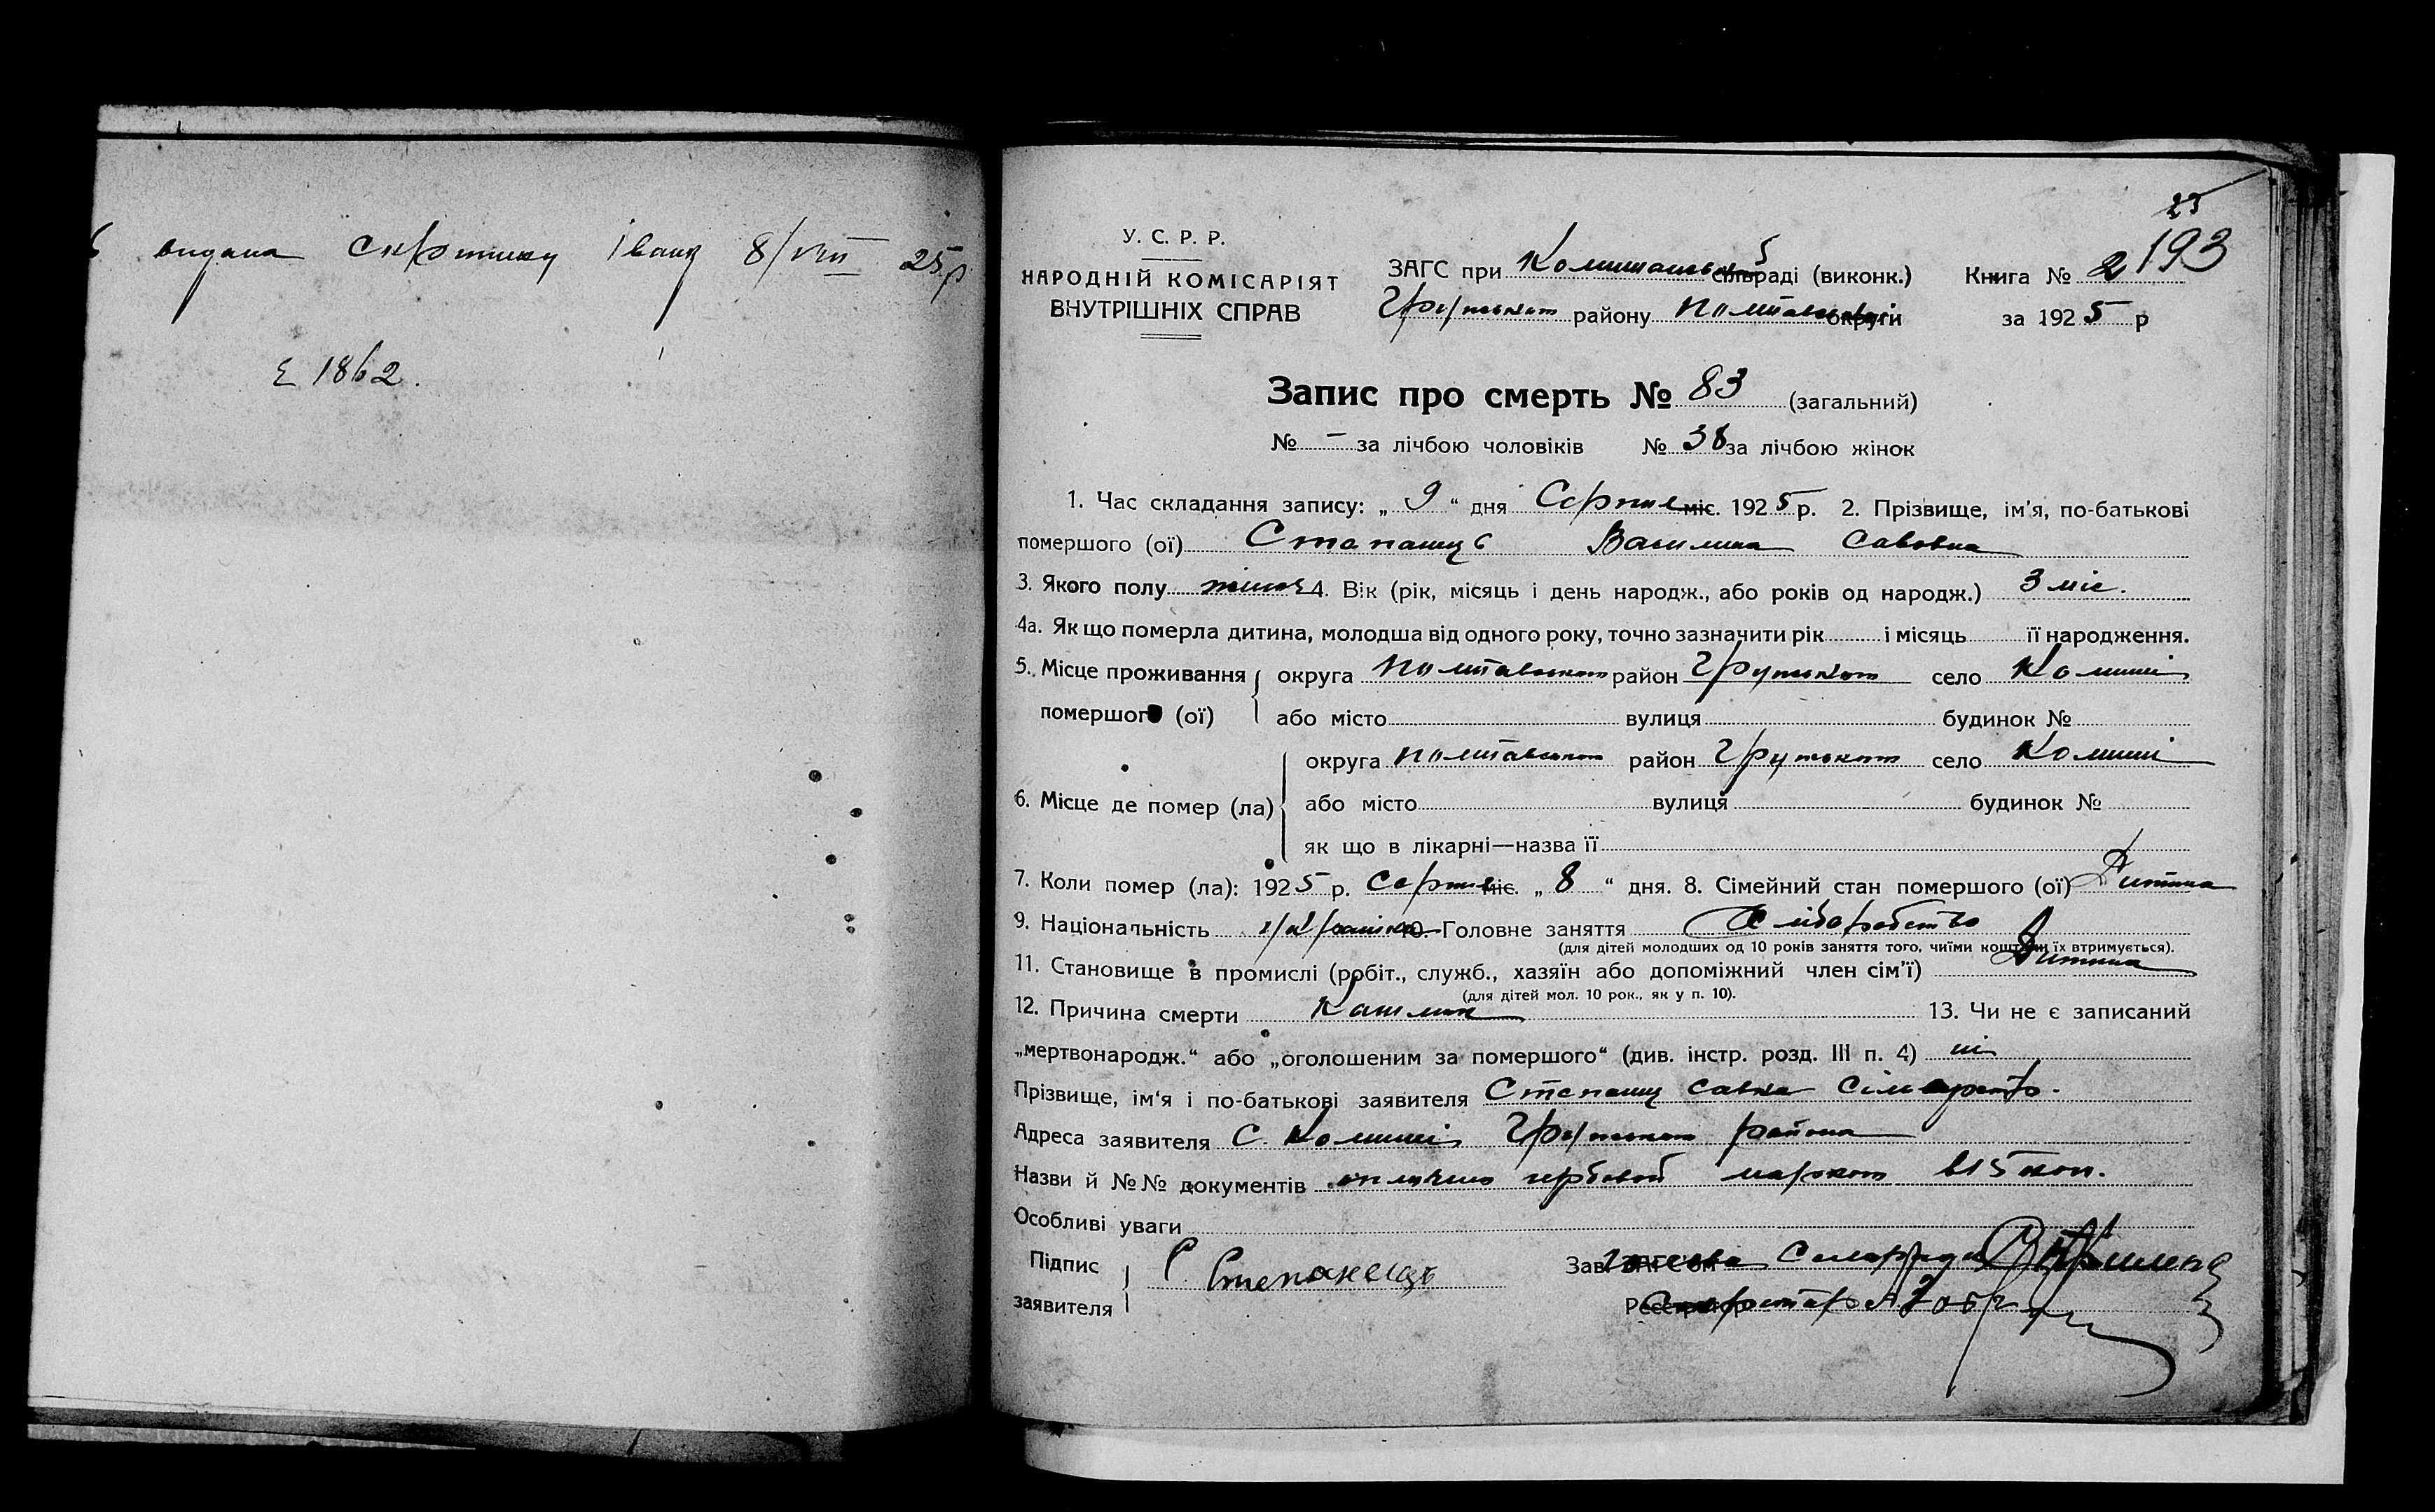 видана Скрипнику Івану 8/VIII 25 р
Є 1862.
25
193
У. С. Р. Р.
НАРОДНІЙ КОМІСАРІЯТ
ВНУТРІШНІХ СПРАВ
ЗАГС при Комишанськ сільраді (виконк.) Книга № 2
району Полтавської округи за 1925 р
Запис про смерть № 83 (загальний)
№ – за лічбою чоловіків № 38 за лічбою жінок
1. Час складання запису: „ 9 “ дня Серпня міс. 1925 р. 2. Прізвище, ім'я, по-батькові
помершого (ої) Степанець Василина Савовна
3. Якого полу жіноч 4. Вік (рік, місяць і день народж., або років од народж.) 3 міс.
4а. Як що померла дитина, молодша від одного року, точно зазначити рік і місяць її народження.
5. Місце проживання округа Полтавського район Грунського село Комиші
помершого (ої) або місто вулиця будинок №
округа Полтавського район Грунського село Комиші
6. Місце де помер (ла) або місто вулиця будинок №
як що в лікарні—назва її
7. Коли помер (ла): 1925 р. Серпня міс. „ 8 “ дня. 8. Сімейний стан помершого (ої) Дитина
9. Національність українка 10. Головне заняття Хліборобство
(для дітей молодших од 10 років заняття того, чиїми коштами їх втримується).
11. Становище в промислі (робіт., служб., хазяїн або допоміжний член сім'ї) Дитина
(для дітей мол. 10 рок., як у п. 10).
12. Причина смерти Кашлик 13. Чи не є записаний
„мертвонародж.“ або „оголошеним за помершого“ (див. інстр. розд. III п. 4) ні
Прізвище, ім'я і по-батькові заявителя Степанец Савка
Адреса заявителя С. Комиші Грунського района
Назви й №№ документів оплачено гербовой маркою в 15 коп.
Особливі уваги
Підпис
заявителя С. Степанець
Зав. ЗАГС'ом Голова Сельради
Реєстратор Секретарь